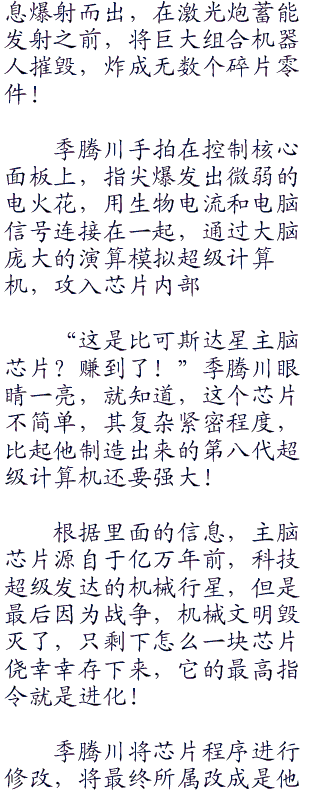 息爆射而出，在激光炮蓄能
发射之前，将巨大组合机器
人摧毁，炸成无数个碎片零
件！
季腾川手拍在控制核心
面板上，指尖爆发出微弱的
电火花，用生物电流和电脑
信号连接在一起，通过大脑
庞大的演算模拟超级计算
机，攻入芯片内部
“这是比可斯达星主脑
芯片？赚到了！”季腾川眼
睛一亮，就知道，这个芯片
不简单，其复杂紧密程度，
比起他制造出来的第八代超
级计算机还要强大！
根据里面的信息，主脑
芯片源自于亿万年前，科技
超级发达的机械行星，但是
最后因为战争，机械文明毁
灭了，只剩下怎么一块芯片
侥幸幸存下来，它的最高指
令就是进化！
季腾川将芯片程序进行
修改，将最终所属改成是他